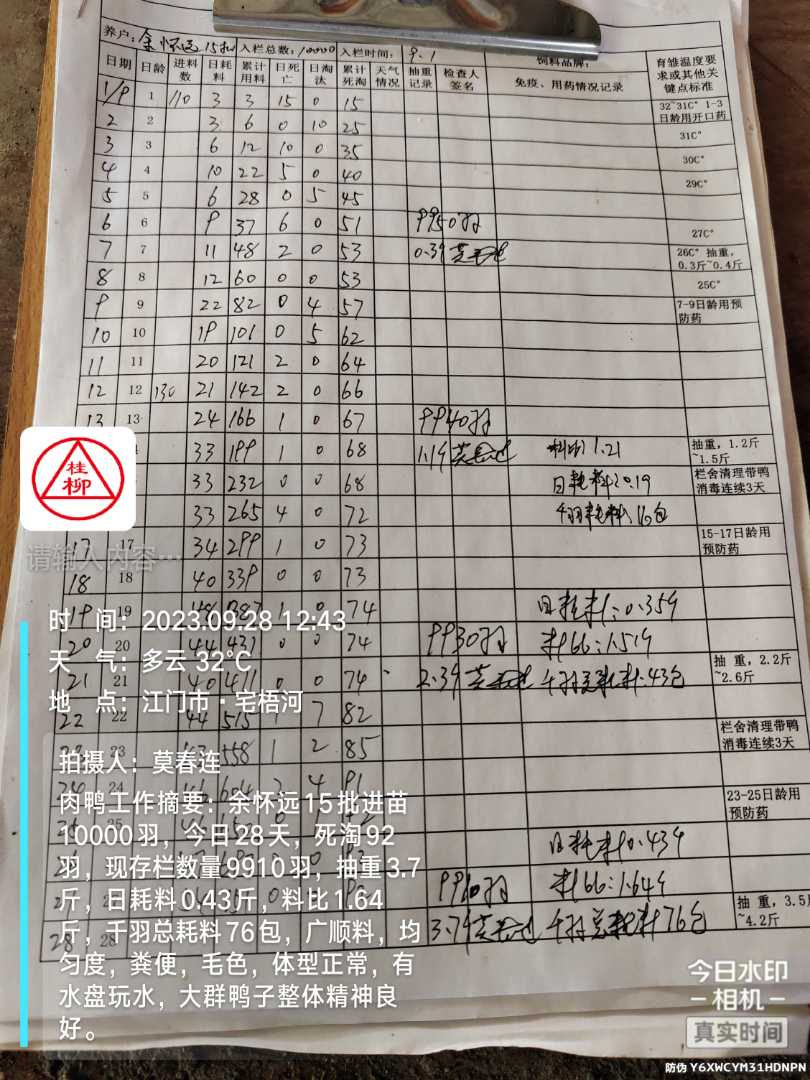 养户: 余怀远15批 入栏总数: 10000 入栏时间: 9.1 饲料品牌:
日期 日龄 进料数 日耗料 累计用料 日死亡 日淘汰 累计死淘 天气情况 抽重记录 检查人签名 免疫、用药情况记录 育雏温度要求或其他关键点标准
1/9 1 110 3 3 15 0 15 32~31C° 1-3日龄用开口药
2 2 3 6 0 10 25 31C°
3 3 6 12 10 0 35 30C°
4 4 10 22 5 0 40 29C°
5 5 6 28 0 5 45
6 6 9 37 6 0 51 9950羽 27C°
7 7 11 48 2 0 53 0.39 莫春连 26C° 抽重,0.3斤~0.4斤
8 8 12 60 0 0 53 25C°
9 9 22 82 0 4 57 7-9日龄用预防药
10 10 19 101 0 5 62
11 11 20 121 2 0 64
12 12 130 21 142 2 0 66
13 13 24 166 1 0 67 9940羽
33 199 1 0 68 1.19 莫春连 料比1.21 抽重,1.2斤~1.5斤
33 232 0 0 68 日耗料0.19 栏舍清理带鸭消毒连续3天
33 265 4 0 72 千羽耗料16包
17 17 34 299 1 0 73 15-17日龄用预防药
18 18 40 339 0 0 73
19 19 1 0 74 日耗料:0.359
20 20 44 431 0 0 74 9930羽 料比:1.519
21 21 40 471 0 0 74 2.39 莫春连 千羽总耗料43包 抽重,2.2斤~2.6斤
22 22 44 515 1 7 82
23 558 1 2 85 栏舍清理带鸭消毒连续3天
24 4 91
23-25日龄用预防药
日耗料0.439
料比:1.649
28 28 3.79 莫春连 千羽总耗料76包 抽重,3.5斤~4.2斤
桂柳
请输入内容…
时 间: 2023.09.28 12:43
天 气: 多云 32℃
地 点: 江门市·宅梧河
拍摄人: 莫春连
肉鸭工作摘要: 余怀远15批进苗
10000羽，今日28天，死淘92
羽，现存栏数量9910羽，抽重3.7
斤，日耗料0.43斤，料比1.64
斤，千羽总耗料76包，广顺料，均
匀度，粪便，毛色，体型正常，有
水盘玩水，大群鸭子整体精神良
好。
今日水印
相机
真实时间
防伪 Y6XWCYM31HDNPN